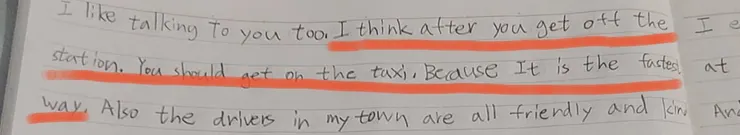 I like talking to you too. I think after you get off the
station. You should get on the taxi, Because It is the fastest
way. Also the drivers in my town are all friendly and kin
I e
at
And